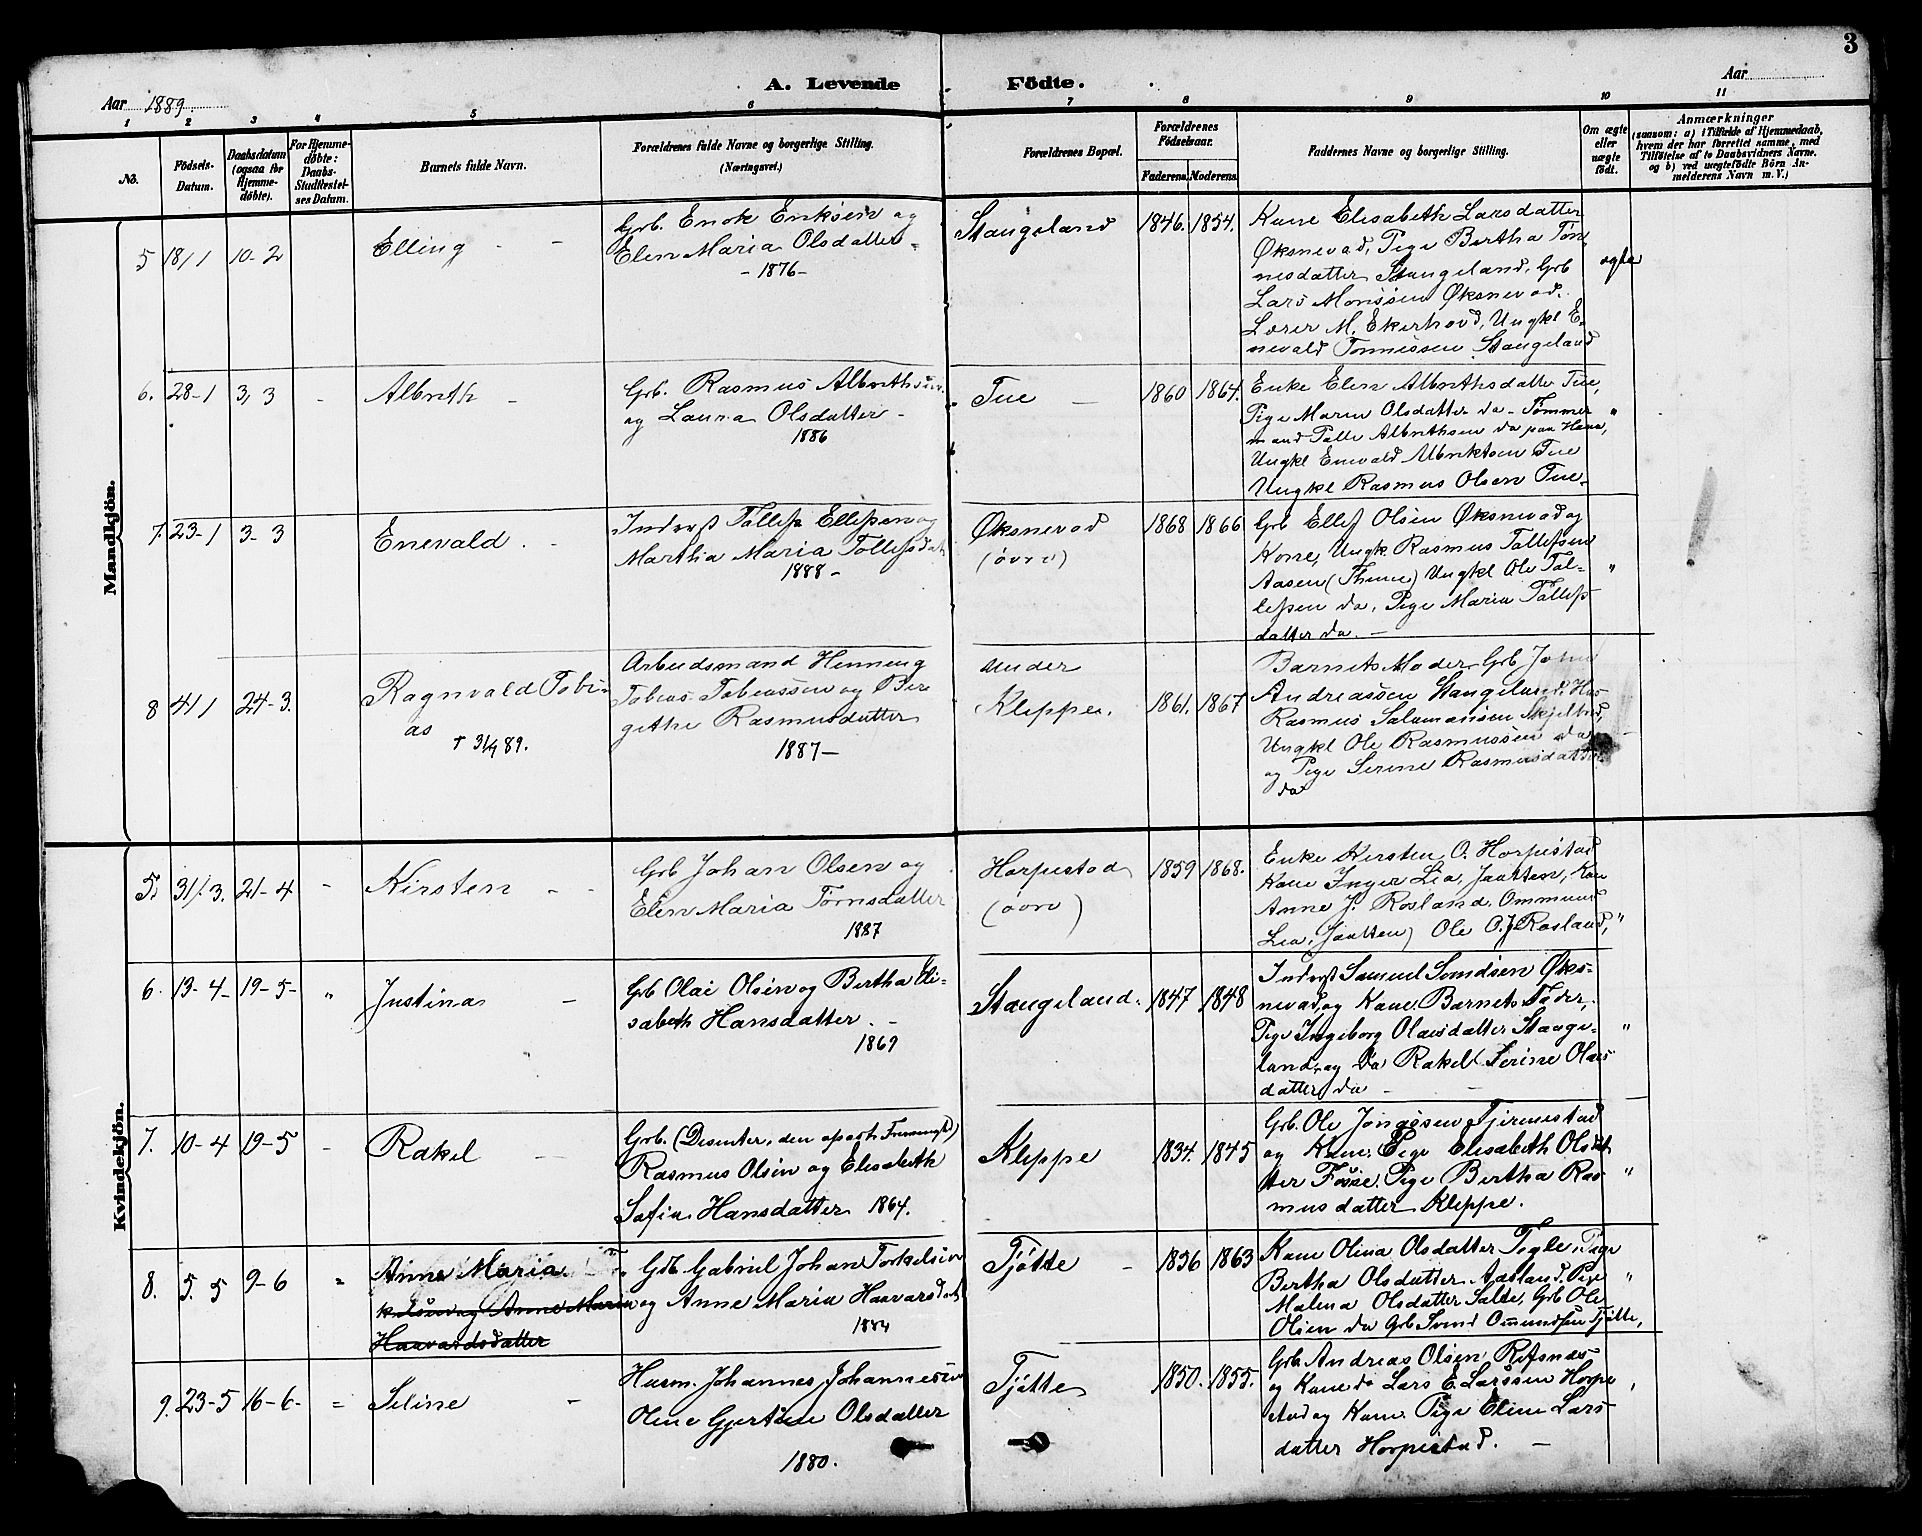 3
A. Levende Födte.
Aar 1889. Aar
1 2 3 4 5 6 7 8 9 10 11
No.
Födsels-
Datum.
Daabsdatum
(ogsaa for
Hjemme-
döbte).
For Hjemme-
döbte:
Daabs-
Stadfæstel-
ses Datum.
Barnets fulde Navn.
Forældrenes fulde Navne og borgerlige Stilling.
(Næringsvei.)
Forældrenes Bopæl.
Forældrenes
Födselsaar.
Faderens. Moderens.
Faddernes Navne og borgerlige Stilling.
Om ægte
eller
uægte
födt.
Anmærkninger
(saasom: a) i Tilfælde af Hjemmedaab,
hvem der har forrettet samme, med
Tilföielse af to Daabsvidners Navne,
og b) ved uægtefödte Börn An-
melderens Navn m. V.)
Mandkjön.
5 18/1 10-2
Elling
Grb. Enok Eriksen og
Elen Maria Olsdatter
1876-
Stangeland
1846. 1854.
Kone Elisabeth Larsdatter
Øksnevad, Pige Bertha Tøn-
nesdatter Stangeland, Grb
Lars Monssen Øksnevad.
Lærer M. Ekerhovd, Ungkl E-
nevald Tønnessen Stangeland
ægte
6. 28-1 3, 3 -
Albreth -
Grb. Rasmus Albrethsen
og Laura Olsdatter -
1886
Tue
1860 1864.
Enke Elen Albrethsdatter Tue,
Pige Maren Olsdatter do - Tømmer
mand Tolle Albrethsen do paa Hana,
Ungkl Enevald Albriktsen Tue
Ungkl Rasmus Olsen Tue-
"
7. 23-1 3-3
Enevald. -
Inderst Tollef Ellefsen og
Martha Maria Tollefsdat
1888-
Øksnevad
(øvre)
1868 1866
Grb Ellef Olsen Øksnevad og
Kone, Ungk. Rasmus Tollefsen
Aasen (Thime) Ungkl Ole Tol-
lefsen do, Pige Maria Tollefs-
datter do. -
"
8 4/1 24-3.
Ragnvald Tobi-
as
† 31/9 89.
Arbeidsmand Henning
Tobias Tobiassen og Bir
githe Rasmusdatter
1887-
under
Kleppe.
1861. 1867
Barnets Moder, Grb John
Andreassen Stangeland. Hus
Rasmus Salamonsen
Ungkl Ole Rasmussen do
og Pige Serine Rasmusdatter
do
Kvindekjön.
5. 31/3. 21-4 -
Kirsten - -
Grb Johan Olsen og
Elen Maria Tørresdatter
1887
Horpestad
(øvre)
1859 1868.
Enke Kirsten O. Horpestad
Kone Inger Lea, Jaatten, Kone
Anne J. Rosland. Ommund
Lea, Jaatten, Ole O. J. Rosland,
"
6. 13-4- 19-5- "
Justina -
Grb Olai Olsen og Bertha Eli-
sabeth Hansdatter. -
1869
Stangeland.
1847 1848
Inderst Samuel Svendsen Øks-
nevad, og Kone. Barnets Fader,
Pige Ingeborg Olaisdatter Stange-
land, og do Rakel Serine Olais-
datter do -
"
7. 10-4 19-5 -
Rakel -
Grb. (Desenter, den apost.
Rasmus Olsen og Elisabeth
Sofia Hansdatter 1864.
Kleppe
1834. 1845
Grb. Ole Jonassen Tjemestad
og Kone. Pige Elisabeth Olsdat
ter Fosse. Pige Bertha Ras
musdatter Kleppe.
"
8. 5. 5 9-6 "
Anne Maria
kelsen og Anne Maria
Haavardsdatter
Grb Gabriel Johan Torkelsen
og Anne Maria Haavarsdat
1884
Tjøtte -
1836 1863
Kone Olina Olsdatter Tegle, Pige
Bertha Olsdatter Aasland, Pige
Malena Olsdatter Salte, Grb Ole
Olsen do Grb Svend Ommundsen Tjøtte,
"
9. 23-5 16-6- "
Seline -
Husm. Johannes Johannessen
Oline Gjertine Olsdatter
1880.
Tjøtte
1850. 1855.
Grb. Andreas Olsen Refsnæs
og Kone do Lars E. Larssen Horpe
stad og Kone. Pige Eline Lars-
datter Horpestad. -